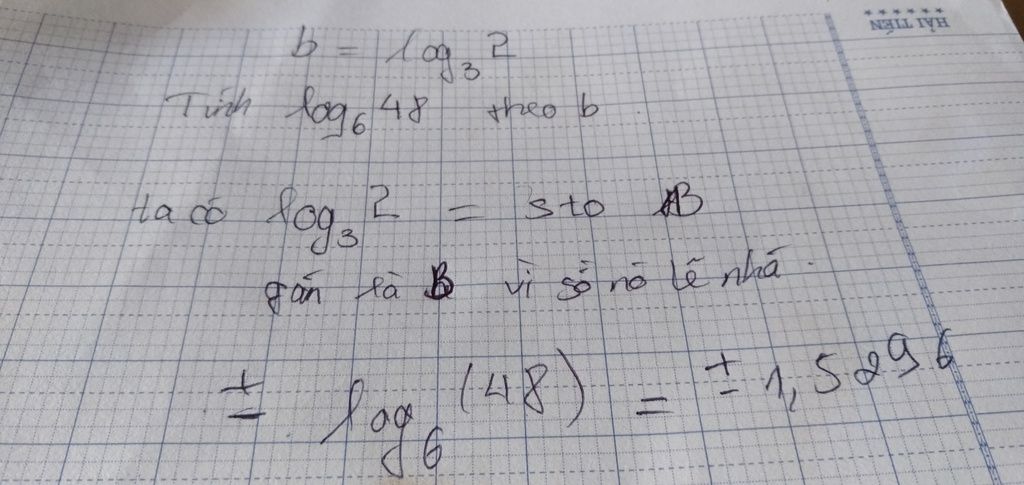 HẢI TIẾN
b = log₃ 2
Tính log₆ 48 theo b
ta có log₃ 2 = sto B
gán là B vì số nó lẽ nhá.
± log₆ (48) = ± 1,5296